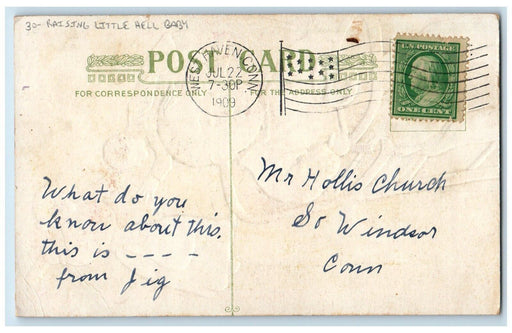 30- RAISING LITTLE HELL BABY
POST CARD
FOR CORRESPONDENCE ONLY
FOR THE ADDRESS ONLY
WEST HAVEN, CONN.
JUL 22
7-30P
1909
U.S. POSTAGE
ONE CENT
What do you
know about this.
this is ----
from Jig
Mr Hollis Church
So Windsor
Conn